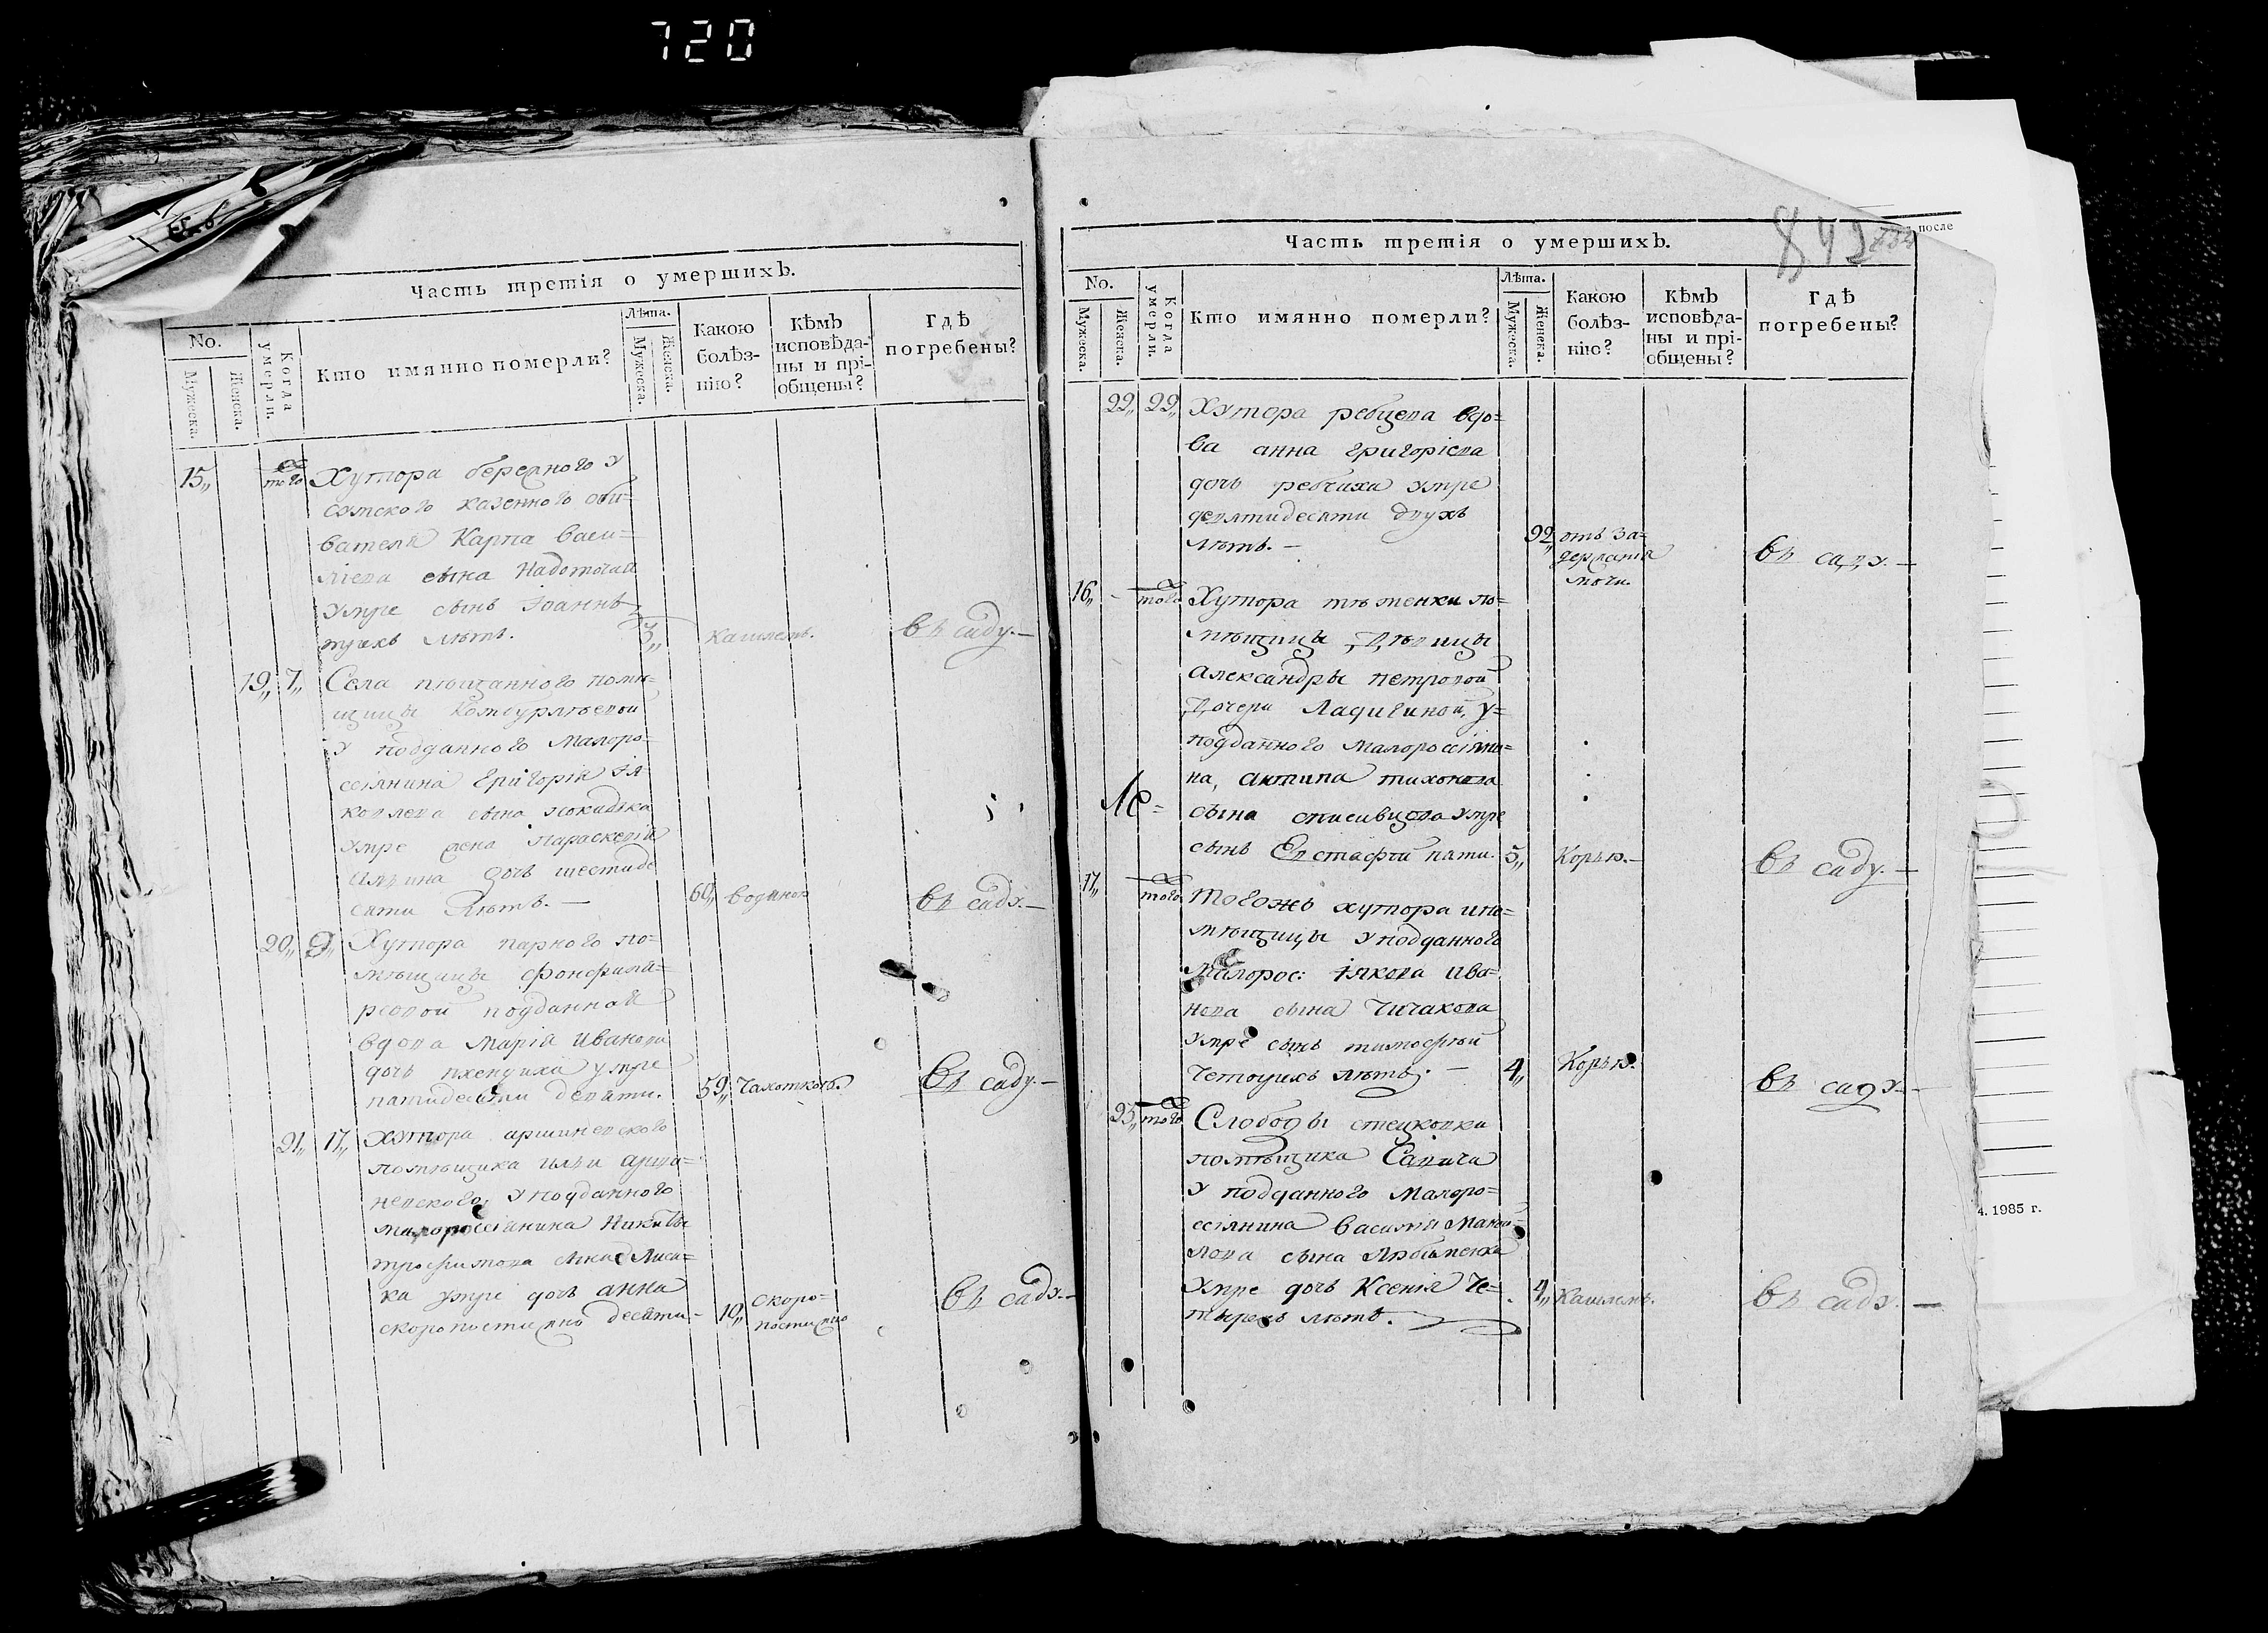 720
Часть третія о умершихъ.
No.
Мужеска.
Женска.
Когда умерли.
Кто имянно померли?
Лѣта.
Мужеска.
Женска.
Какою болѣз-
нію?
Кѣмъ
исповѣда-
ны и прі-
общены?
Гдѣ
погребены?
15,, того Хутора бережного у
сумского казенного оби=
вателя Карпа васи=
ліева сына
умре сынъ Іоаннъ
трiохъ лѣтъ. 3,, кашлемъ. въ саду.—
19,, 7,, Села пѣщанного помѣ=
щицы
у подданного малоро=
ссіянина Григорія Iя=
ковлева сына
умре жена Параскевія
дочь шестиде
сяти лѣтъ.— 60,, водяною въ саду.—
20,, 9,, Хутора парного по=
мѣщицы
подданная
вдова Марія Иванова
дочь умре
пятидесяти девяти. 59,, Чахоткою. въ саду.—
21,, 17,, хутора аршиневского
помѣщика ильи арши=
невского, у подданного
малороссіянина Никиты
трофимова сына Лиси=
ка умре дочь анна
скоропостижно десяти— 10,, скоро=
постижно въ саду.—
Часть третія о умершихъ.
842
после
No.
Мужеска.
Женска.
Когда умерли.
Кто имянно померли?
Лѣта.
Мужеска.
Женска.
Какою
болѣз-
нію?
Кѣмъ
исповѣда-
ны и прі-
общены?
Гдѣ
погребены?
22,, 22,, Хутора ребцева вдо=
ва анна григоріева
дочь ребчиха умре
девятидесяти двухъ
лѣтъ.— 92,, отъ за=
держанія
мочи. въ саду.—
16,, того Хутора по=
мѣщицы дѣвицы
александры петровой
дочери Ладигиной, у=
подданного малороссіяни=
на, антипа тихонова
сына умре
сынъ Евстафій пяти. 5,, Корью.— въ саду.—
17,, того Тогожъ хутора ипо=
мѣщицы у подданного
малорос: іякова Ива=
нова сына Чичахова
умре сынъ тимофей
четырихъ лѣтъ.— 4,, Корью. въ саду.—
23,, того Слободы стецковки
помѣщика Савича
у подданного Малоро=
ссіянина василія Мануй=
лова сына
Умре дочь Ксенія че=
тырехъ лѣтъ. 4,, Кашлемъ. въ саду.—
4. 1985 г.